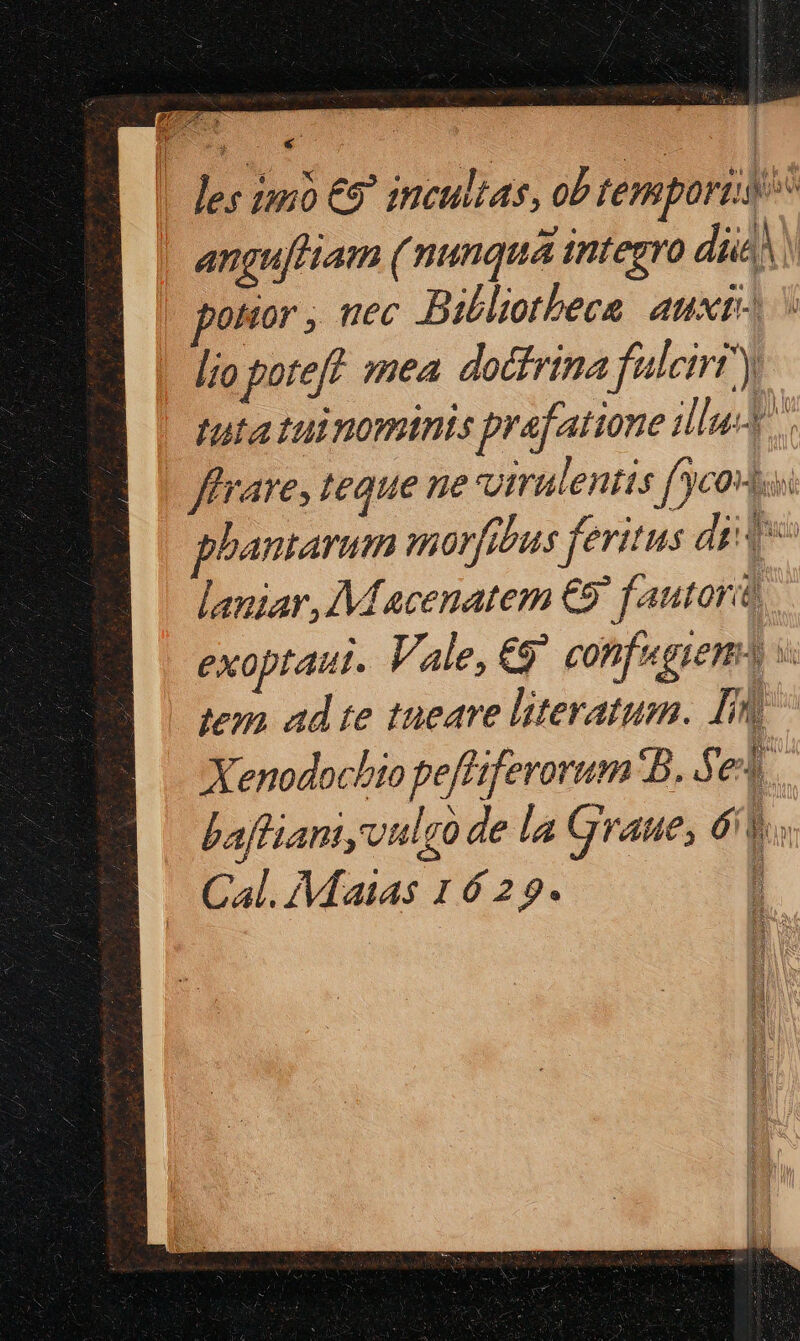 les imò & incultas, ob temporis
angustiam (nunquã integro diè
potior, nec Bibliothecæ auxi-
lio potest mea doctrina fulciri)
tuta tui nominis præfatione illu-
strare, teque ne virulentis syco-
phantarum morsibus feritus di-
laniar, Mæcenatem & fautorẽ
exoptaui. Vale, & confugien-
tem ad te tueare literatum. In
Xenodochio pestiferorum B. Se-
bastiani, vulgò de la Graue, 6
Cal. Maias 1629.